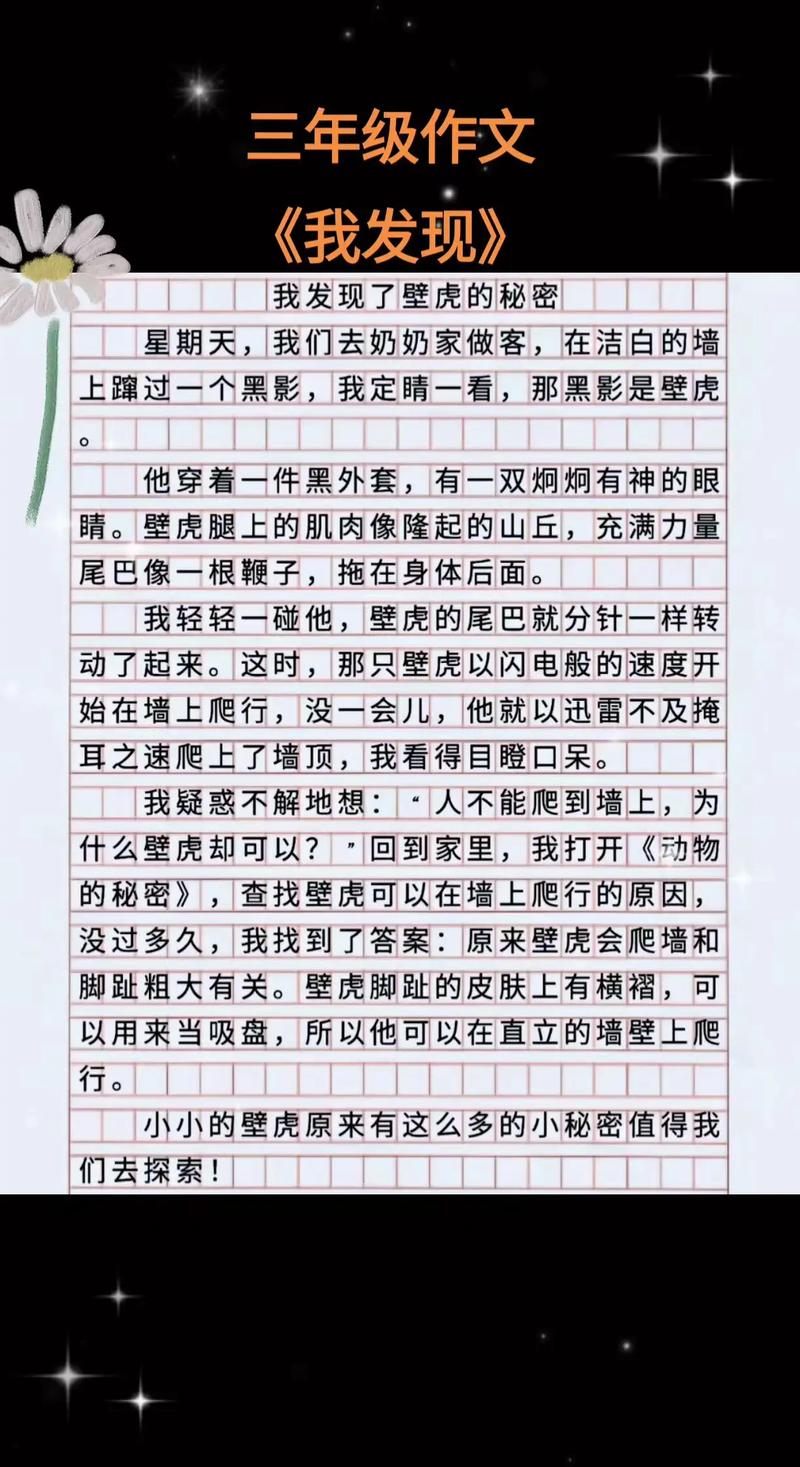 三年级作文
《我发现》
我发现了壁虎的秘密
星期天，我们去奶奶家做客，在洁白的墙
上蹿过一个黑影，我定睛一看，那黑影是壁虎
。
他穿着一件黑外套，有一双炯炯有神的眼
睛。壁虎腿上的肌肉像隆起的山丘，充满力量
尾巴像一根鞭子，拖在身体后面。
我轻轻一碰他，壁虎的尾巴就分针一样转
动了起来。这时，那只壁虎以闪电般的速度开
始在墙上爬行，没一会儿，他就以迅雷不及掩
耳之速爬上了墙顶，我看得目瞪口呆。
我疑惑不解地想：“人不能爬到墙上，为
什么壁虎却可以？”回到家里，我打开《动物
的秘密》，查找壁虎可以在墙上爬行的原因，
没过多久，我找到了答案：原来壁虎会爬墙和
脚趾粗大有关。壁虎脚趾的皮肤上有横褶，可
以用来当吸盘，所以他可以在直立的墙壁上爬
行。
小小的壁虎原来有这么多的小秘密值得我
们去探索！